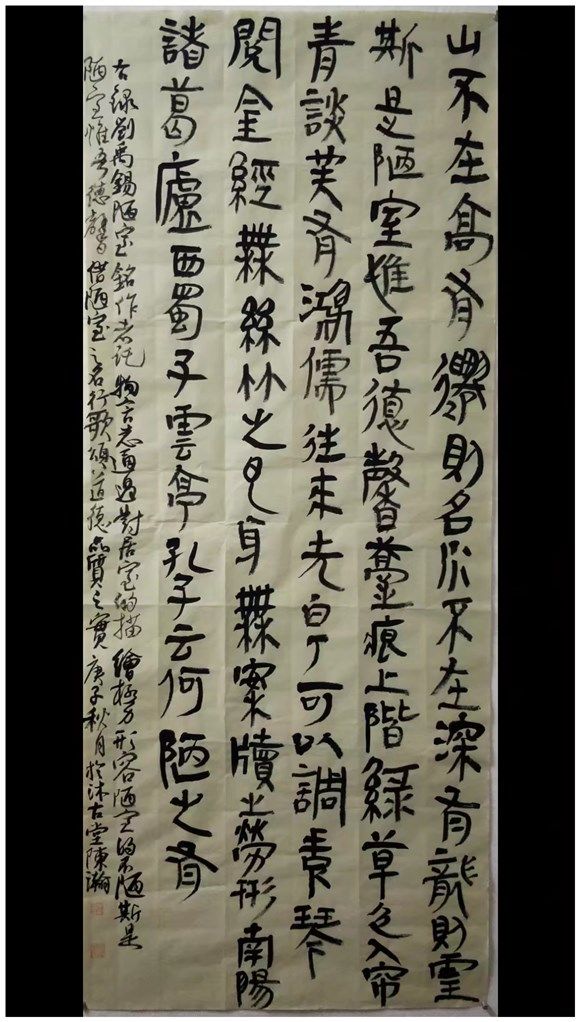 山不在高有僊則名水不在深有龍則靈
斯是陋室惟吾德馨薹痕上階綠草色入帘
青談笑有鴻儒往來无白丁可以調素琴
閱金經無絲竹之亂耳無案牘之勞形南陽
諸葛廬西蜀子雲亭孔子云何陋之有
右録劉禹錫陋室銘作者託物言志通過對居室的描繪極力形容陋室的不陋斯是
陋室惟吾德馨借陋室之名行歌頌道德品質之實庚子秋月於沐古堂陳瀚